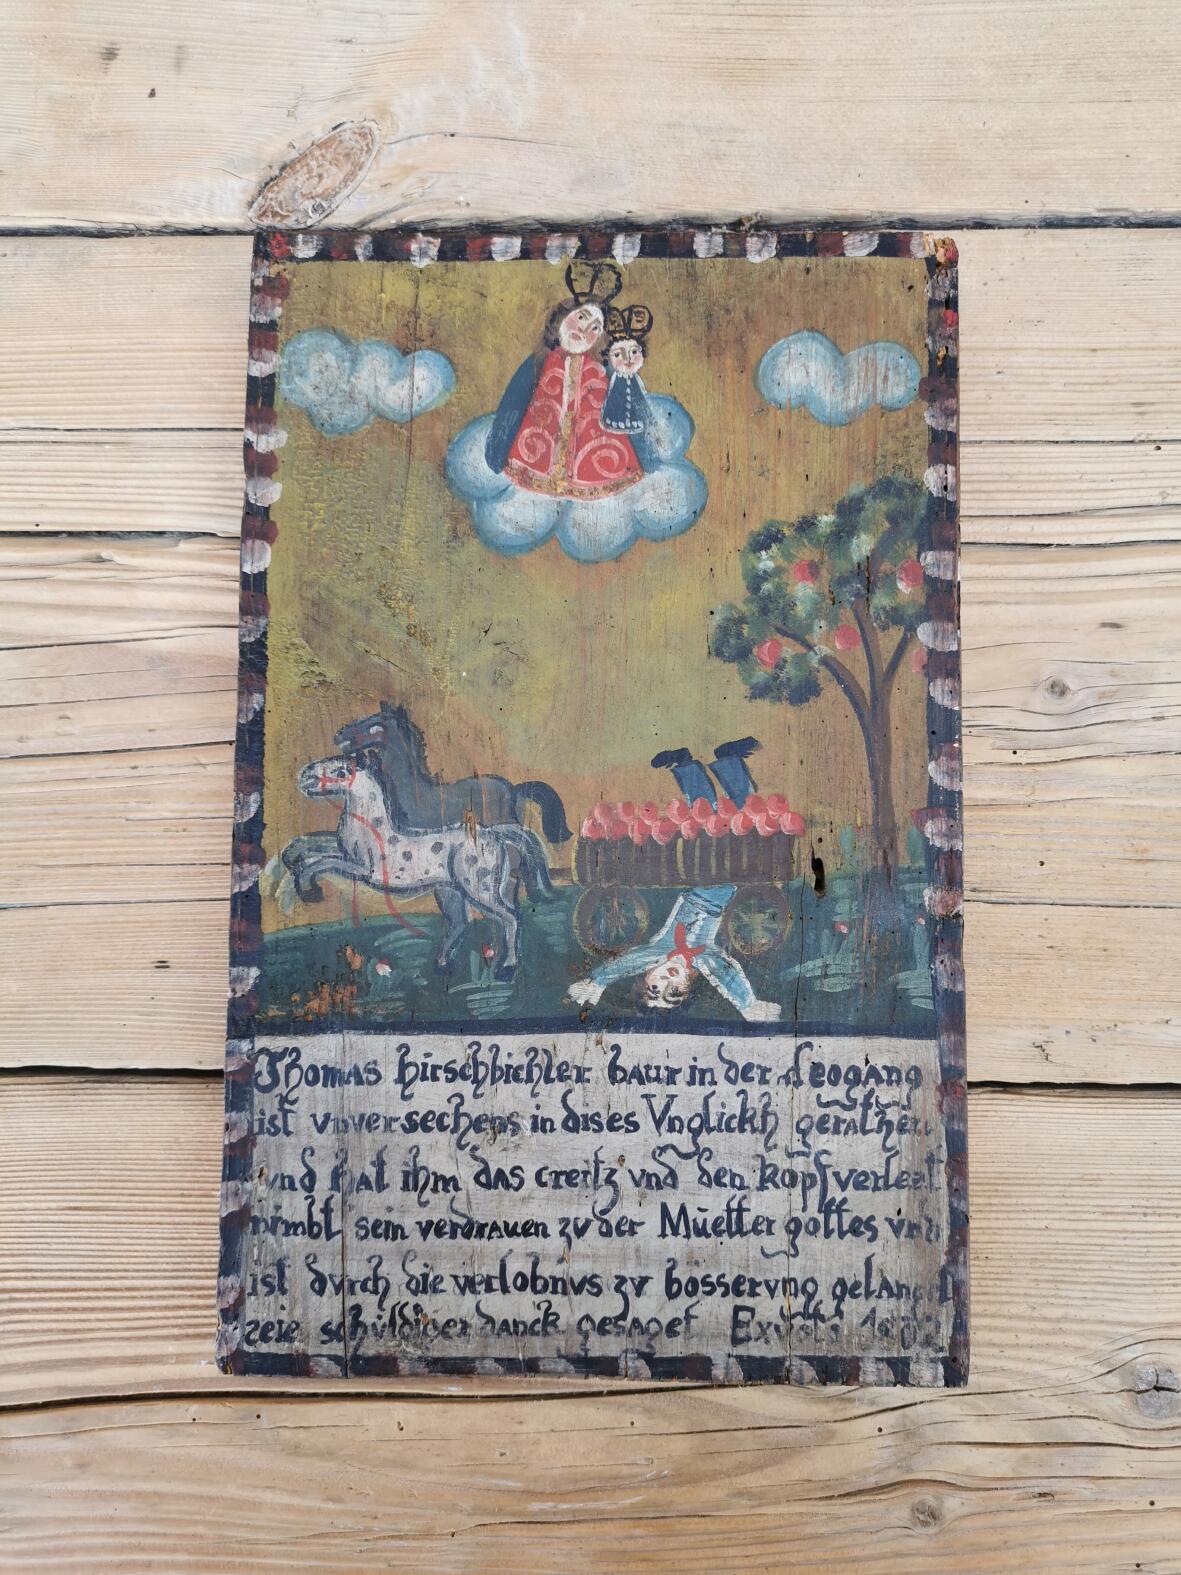 Thomas hirschbichler baur in der Leogang
ist vnversechens in dises Vnglickh gerathen
vnd hat ihm das creitz vnd den kopf verlezt
nimbt sein verdrauen zu der Müetter gottes vnd
ist dvrch die verlobnvs zv bosservng gelangt
seie schuldiger danck gesaget Exvoto